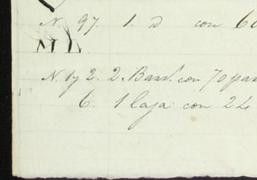 N. 97 1. d con 60
ML
N. 1 y 2. 2. Barr.s con 70 par
6. 1 Caja con 24